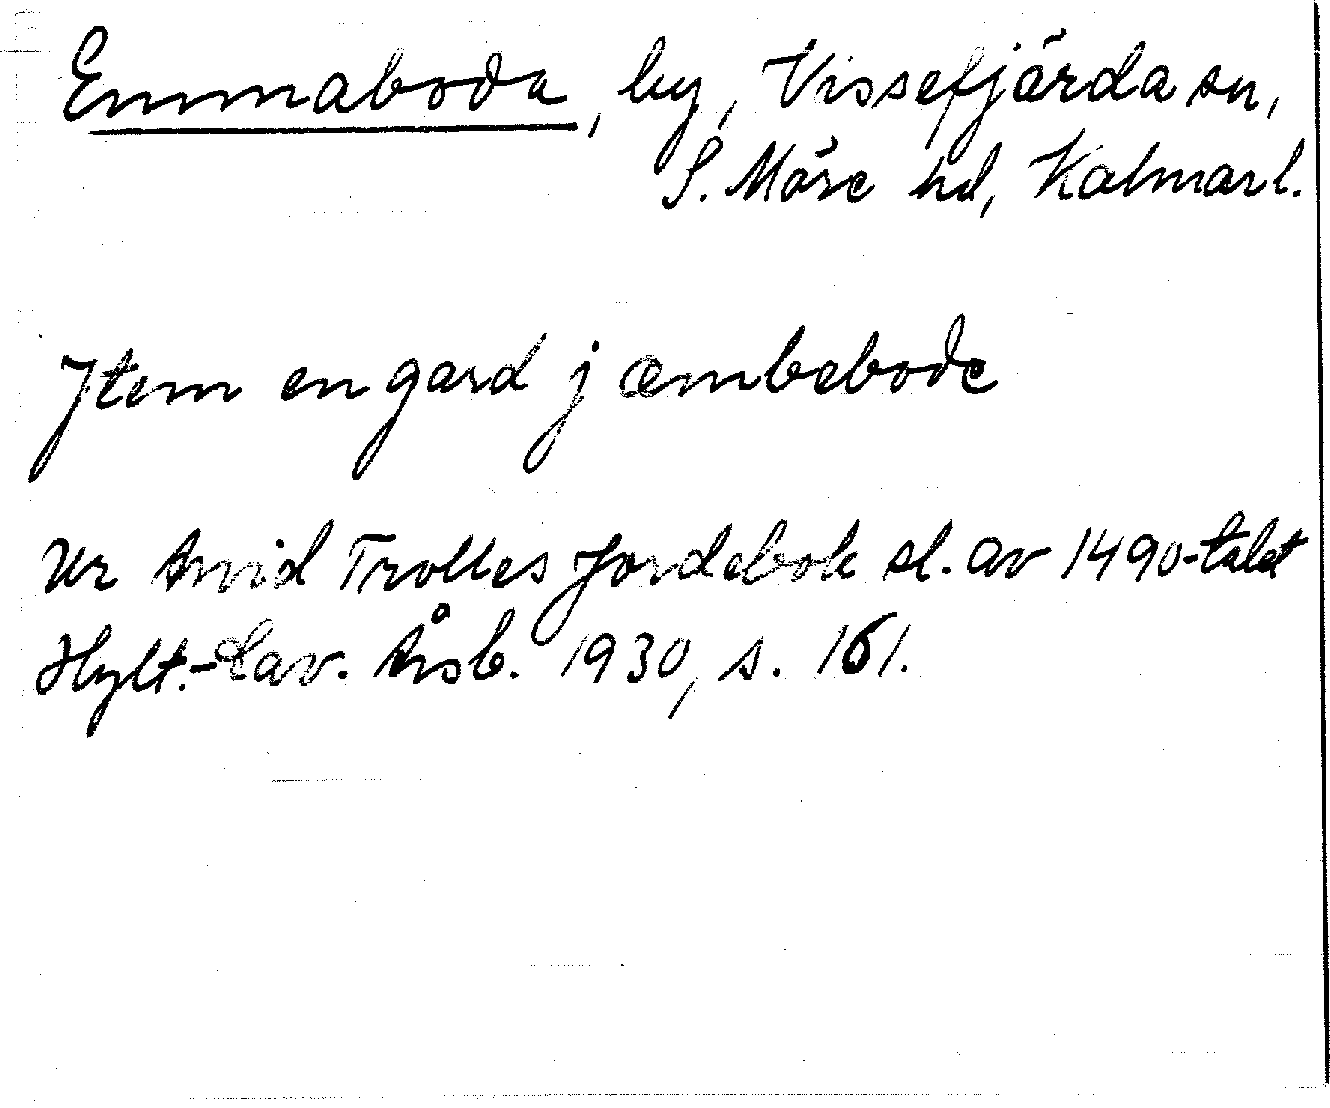 Emmaboda, by, Vissefjärda sn,
S. Möre hd, Kalmar l.
Jtem en gard j æmbebode
Ur Arvid Trolles Jordebok sl. av 1490-talet
Hylt.-Cav. Årsb. 1930, s. 161.